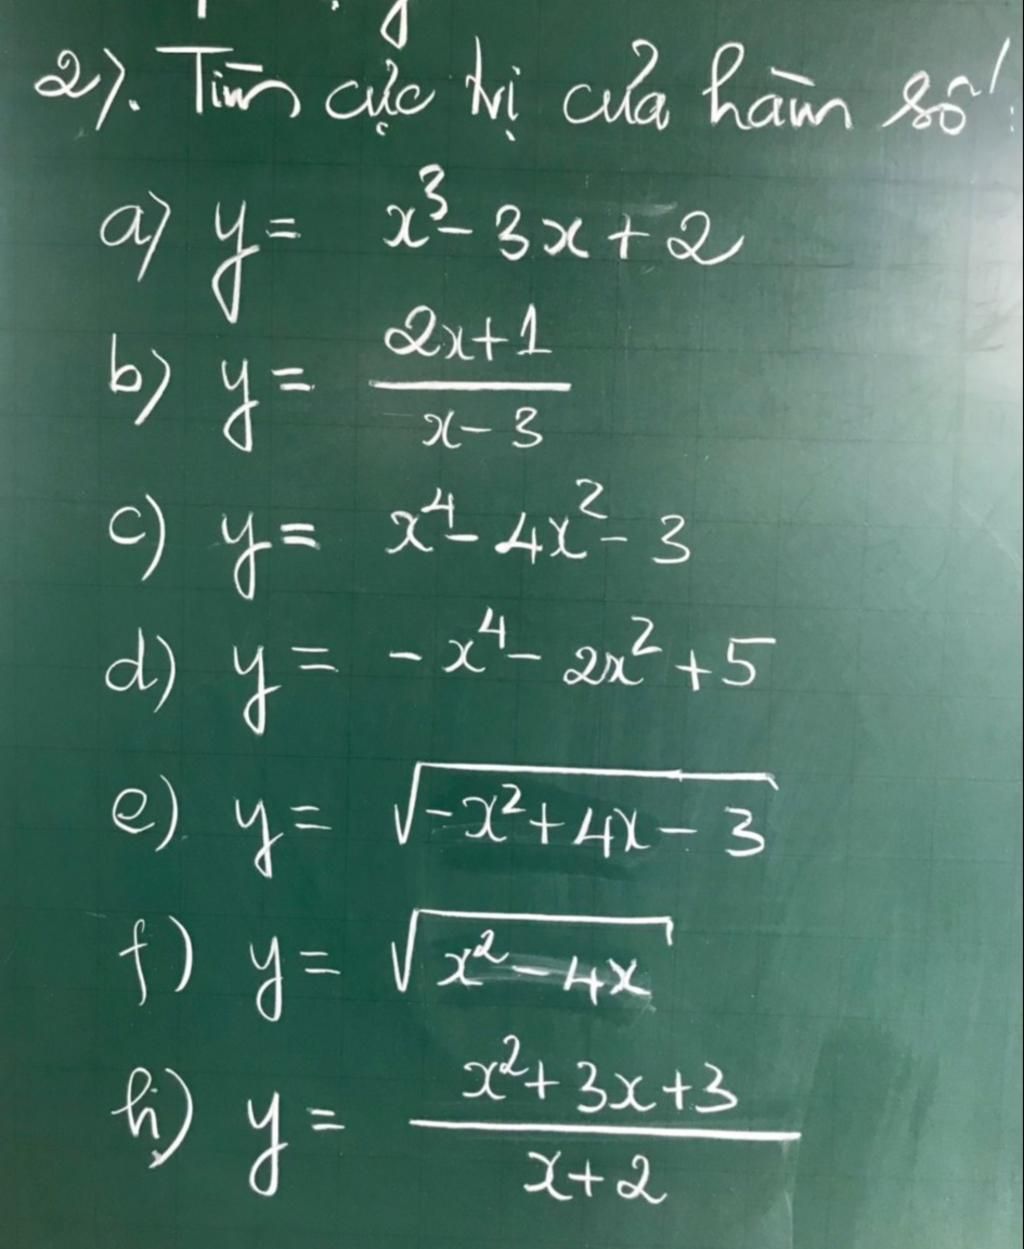 2). Tìm cực trị của hàm số:
a) y = x³ - 3x + 2
b) y = (2x+1)/(x-3)
c) y = x⁴ - 4x² - 3
d) y = -x⁴ - 2x² + 5
e) y = √(-x² + 4x - 3)
f) y = √(x² - 4x)
h) y = (x² + 3x + 3)/(x+2)